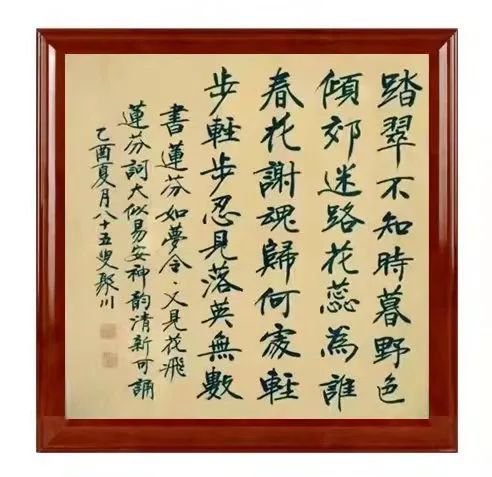 踏翠不知時暮野色
傾郊迷路花蕊為誰
春花謝魂歸何處輕
步輕步忍見落英無數
書蓮芬如夢令·又見花飛
蓮芬詞大似易安神韵清新可誦
乙酉夏月八十五叟聚川